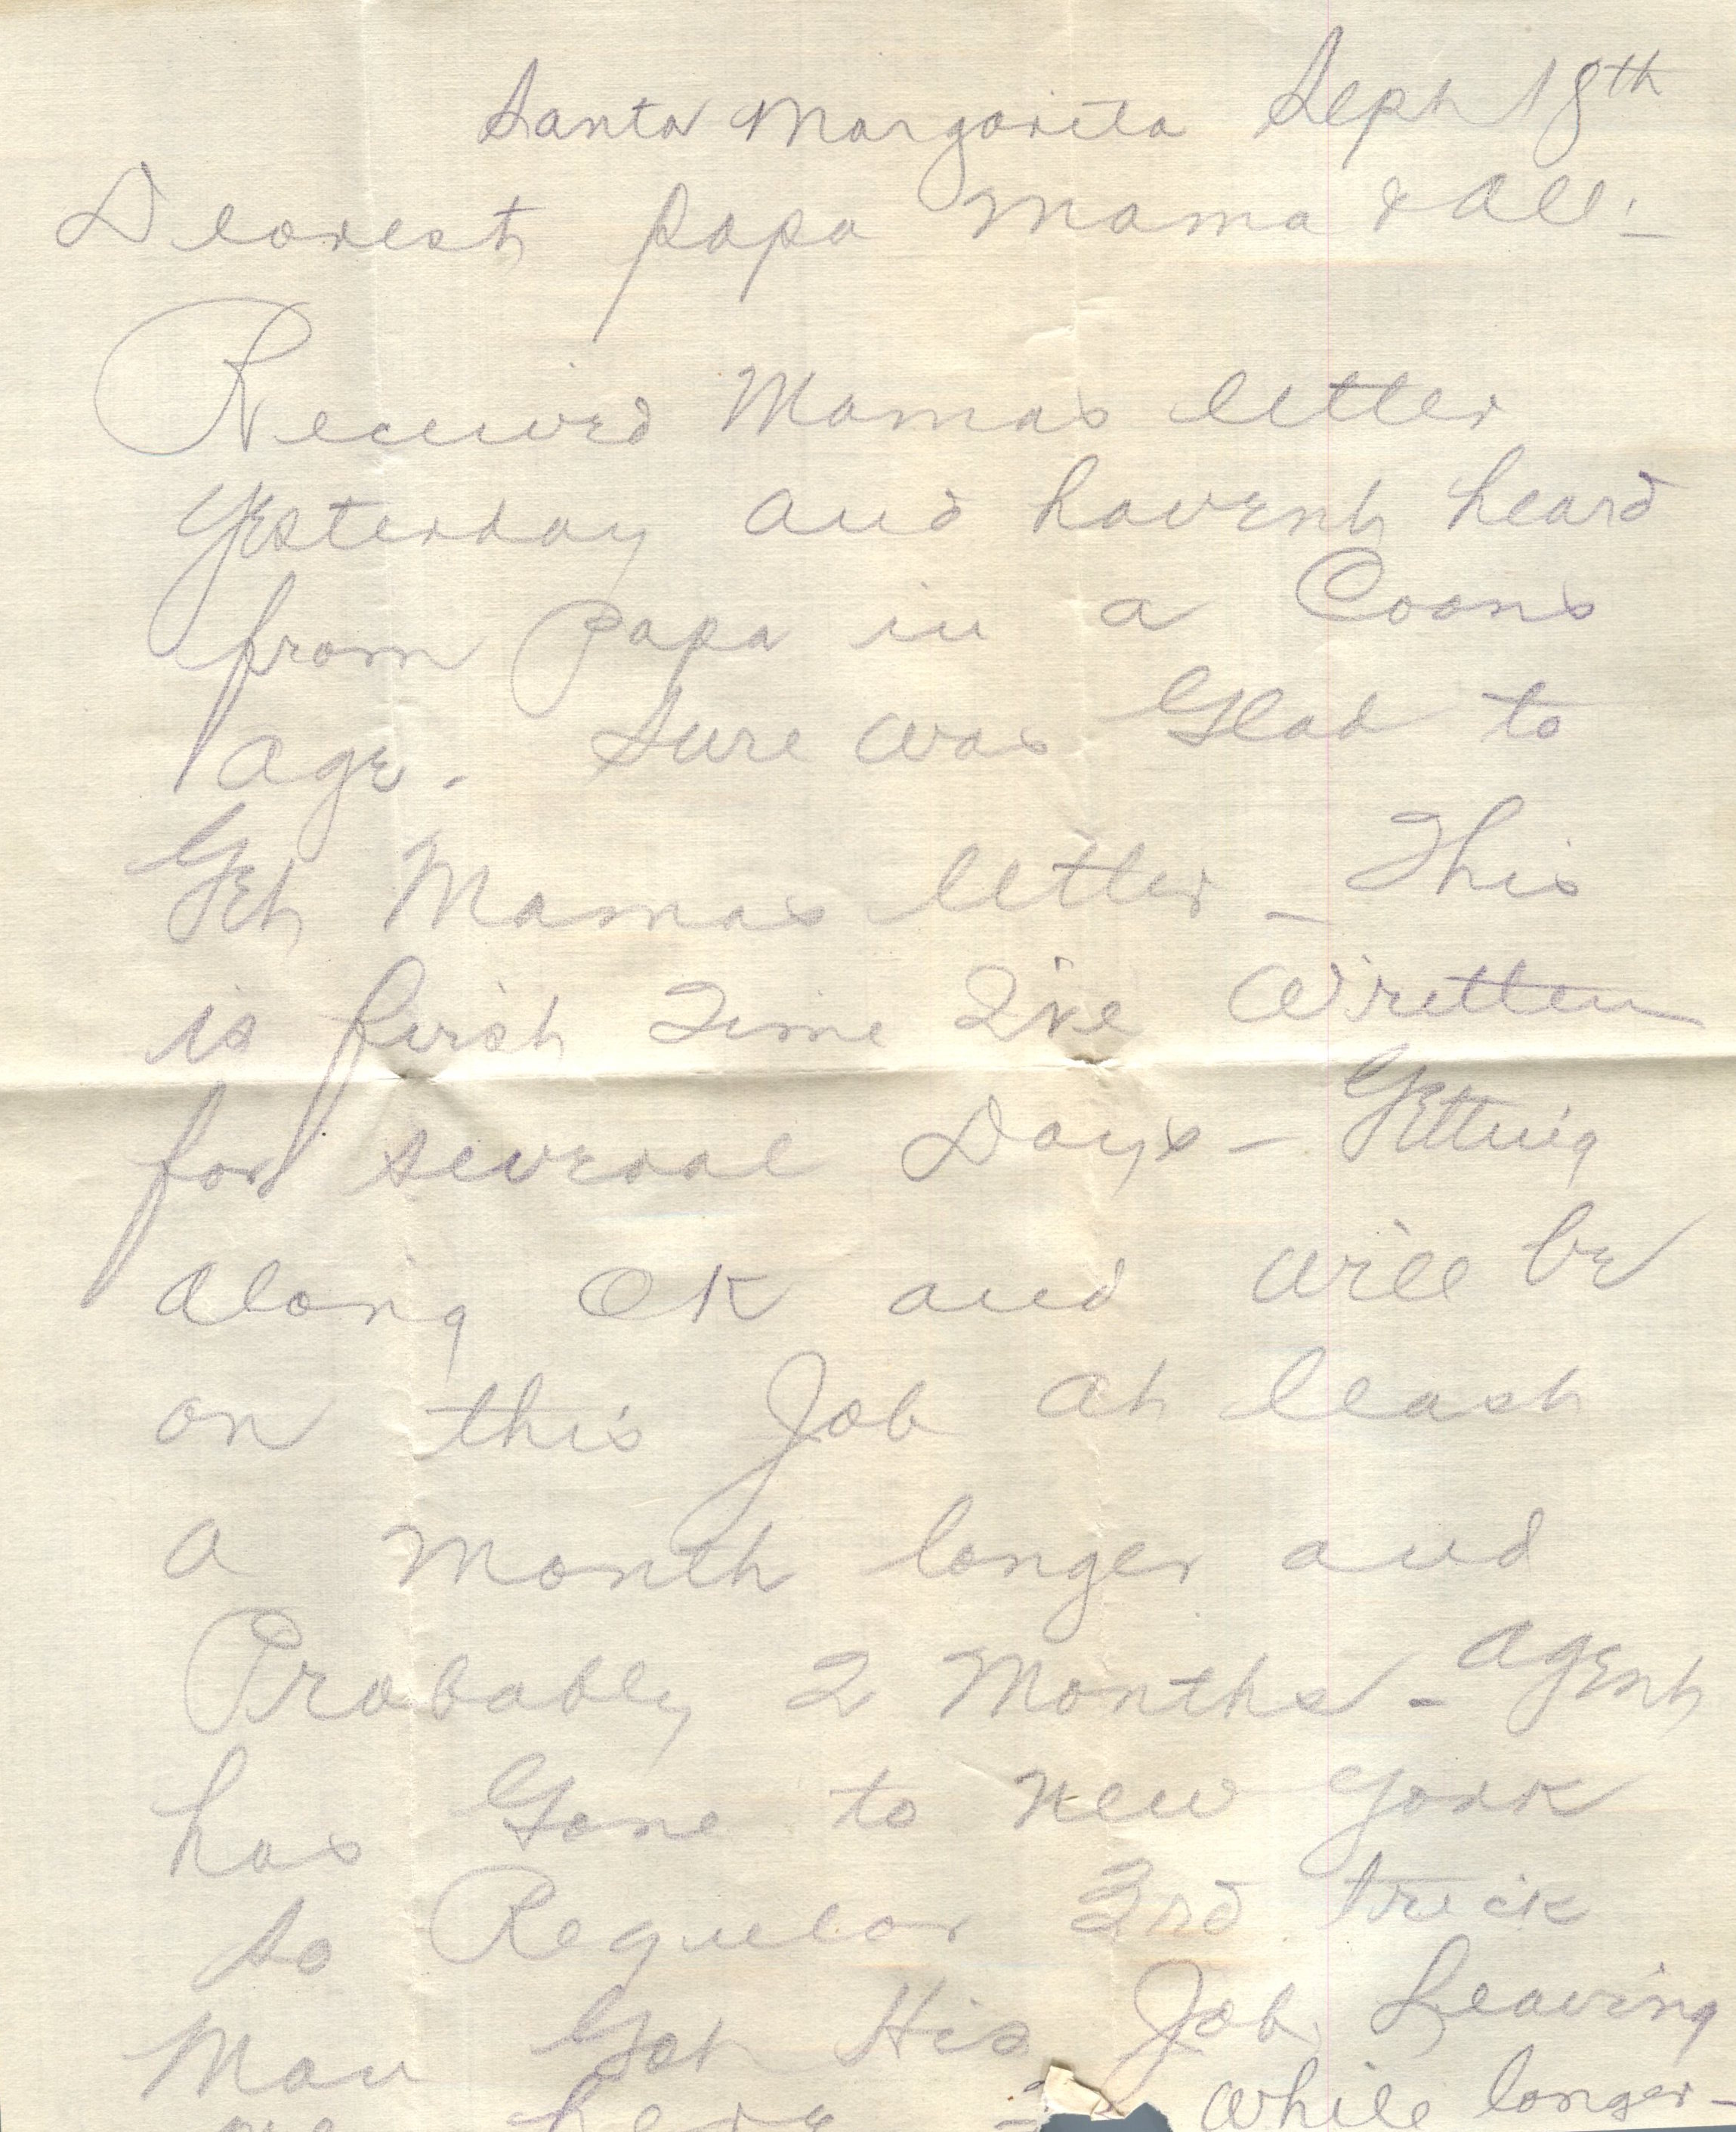 Santa Margarita Sept 18th
Dearest Papa Mama & All:-
Received Mamas letter
Yesterday and havent heard
from Papa in a Coons
age. Sure was Glad to
Get Mamas letter - This
is first Time I've Written
for several Days - Getting
along OK and will be
on this Job at least
a month longer and
Probably 2 Months - Agent
has Gone to New York
so Regular 3rd trick
Man Got His Job, Leaving
me here while longer -